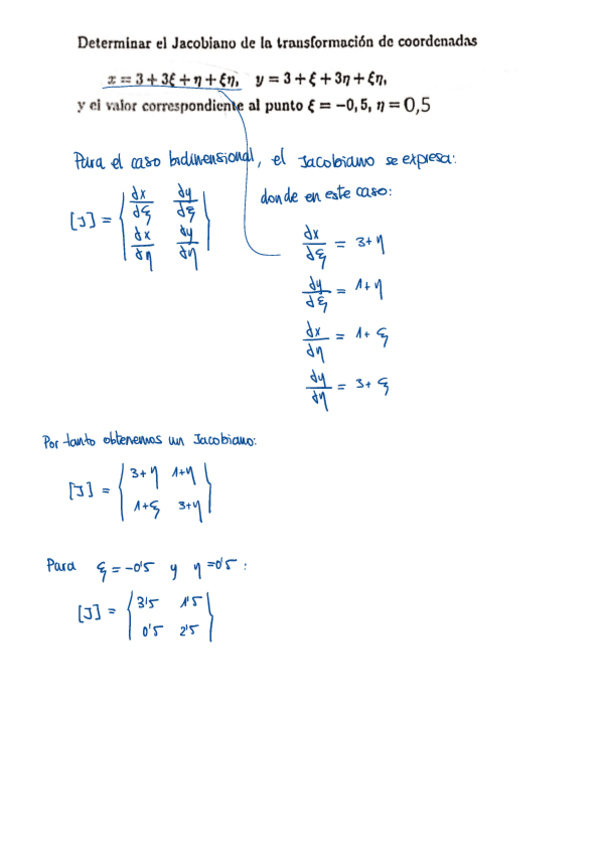 Determinar el Jacobiano de la transformación de coordenadas
x = 3 + 3ξ + η + ξη,   y = 3 + ξ + 3η + ξη,
y el valor correspondiente al punto ξ = −0,5, η = 0,5
Para el caso bidimensional, el Jacobiano se expresa:
[J] = | dx/dξ  dy/dξ |
| dx/dη  dy/dη |
donde en este caso:
dx/dξ = 3+η
dy/dξ = 1+η
dx/dη = 1+ξ
dy/dη = 3+ξ
Por tanto obtenemos un Jacobiano:
[J] = | 3+η  1+η |
| 1+ξ  3+η |
Para ξ = -0'5 y η = 0'5 :
[J] = | 3'5  1'5 |
| 0'5  2'5 |